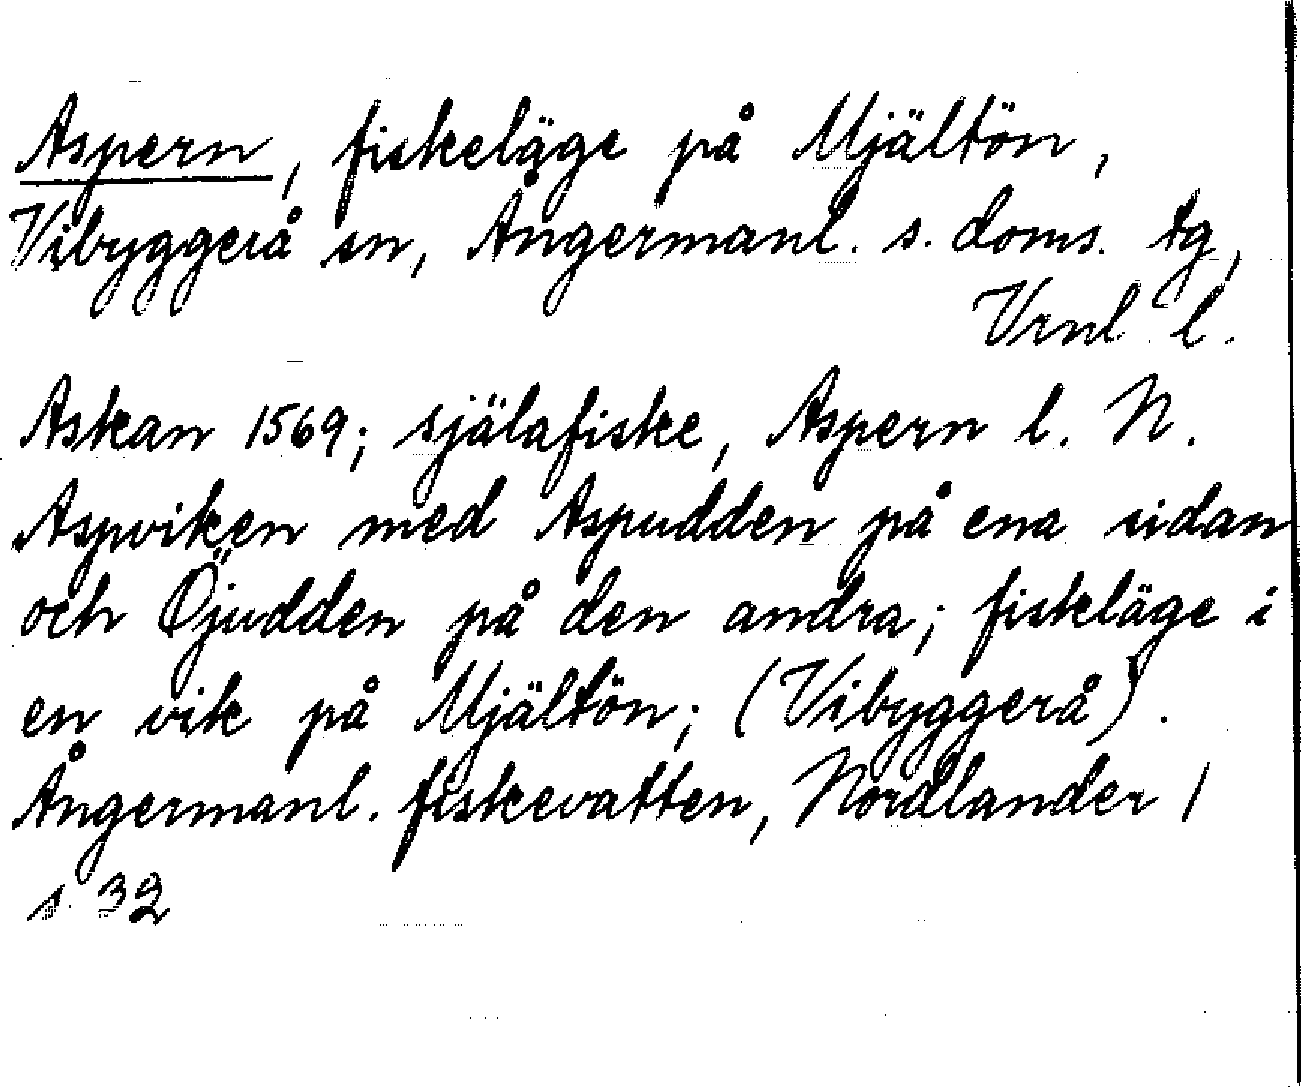 Aspern, fiskeläge på Mjältön,
Vibyggerå sn, Ångermanl. s. doms. tg,
Vrnl l.
Askan 1569; själafiske, Aspern l. N.
Aspviken med Aspudden på ena sidan
och Öjudden på den andra; fiskläge i
en vik på Mjältön; (Vibyggerå).
Ångermanl. fiskevatten, Nordlander 1
s. 32